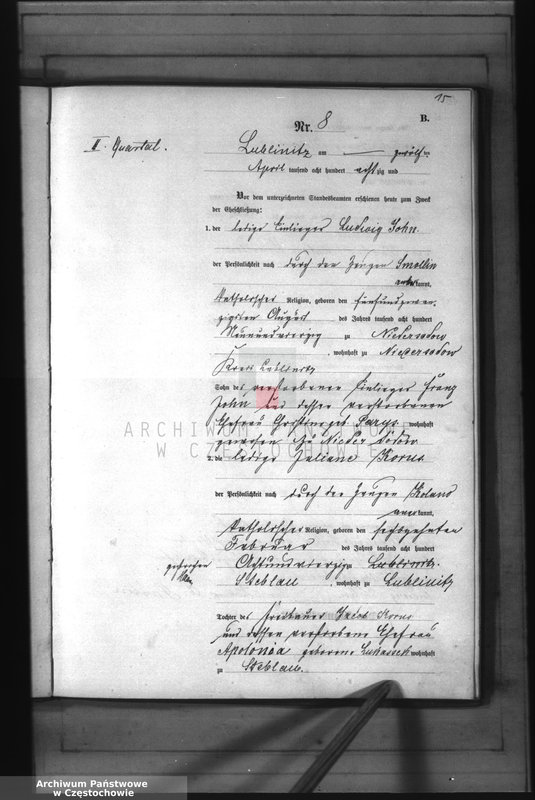 15
B.
Nr. 8
II. Quartal.
Lublinitz am — zwölften
April tausend acht hundert achtzig und
Vor dem unterzeichneten Standesbeamten erschienen heute zum Zweck
der Eheschließung:
1. der ledige Einlieger Ludwig John
der Persönlichkeit nach durch den Zeugen Smollin
anerkannt,
katholischer Religion, geboren den fünfundzwan-
zigsten August des Jahres tausend acht hundert
Neunundvierzig zu Niedersodow
, wohnhaft zu Niedersodow
Kreis Lublinitz
Sohn des verstorbenen Einlieger Franz
John und dessen verstorbenen
Ehefrau wohnhaft
gewesen zu Nieder Sodow
2. die ledige Juliane Korus
der Persönlichkeit nach durch den Zeugen Roland
anerkannt,
katholischer Religion, geboren den sechszehnten
Februar des Jahres tausend acht hundert
gestrichen Achtundvierzig zu Lublinitz.
Steblau , wohnhaft zu Lublinitz
Tochter des Freibauer Jacob Korus
und dessen verstorbene Ehefrau
Apolonia geborene Lukassek wohnhaft
zu Steblau.
ARCHIWUM PAŃSTWOWE
W CZĘSTOCHOWIE
Archiwum Państwowe
w Częstochowie